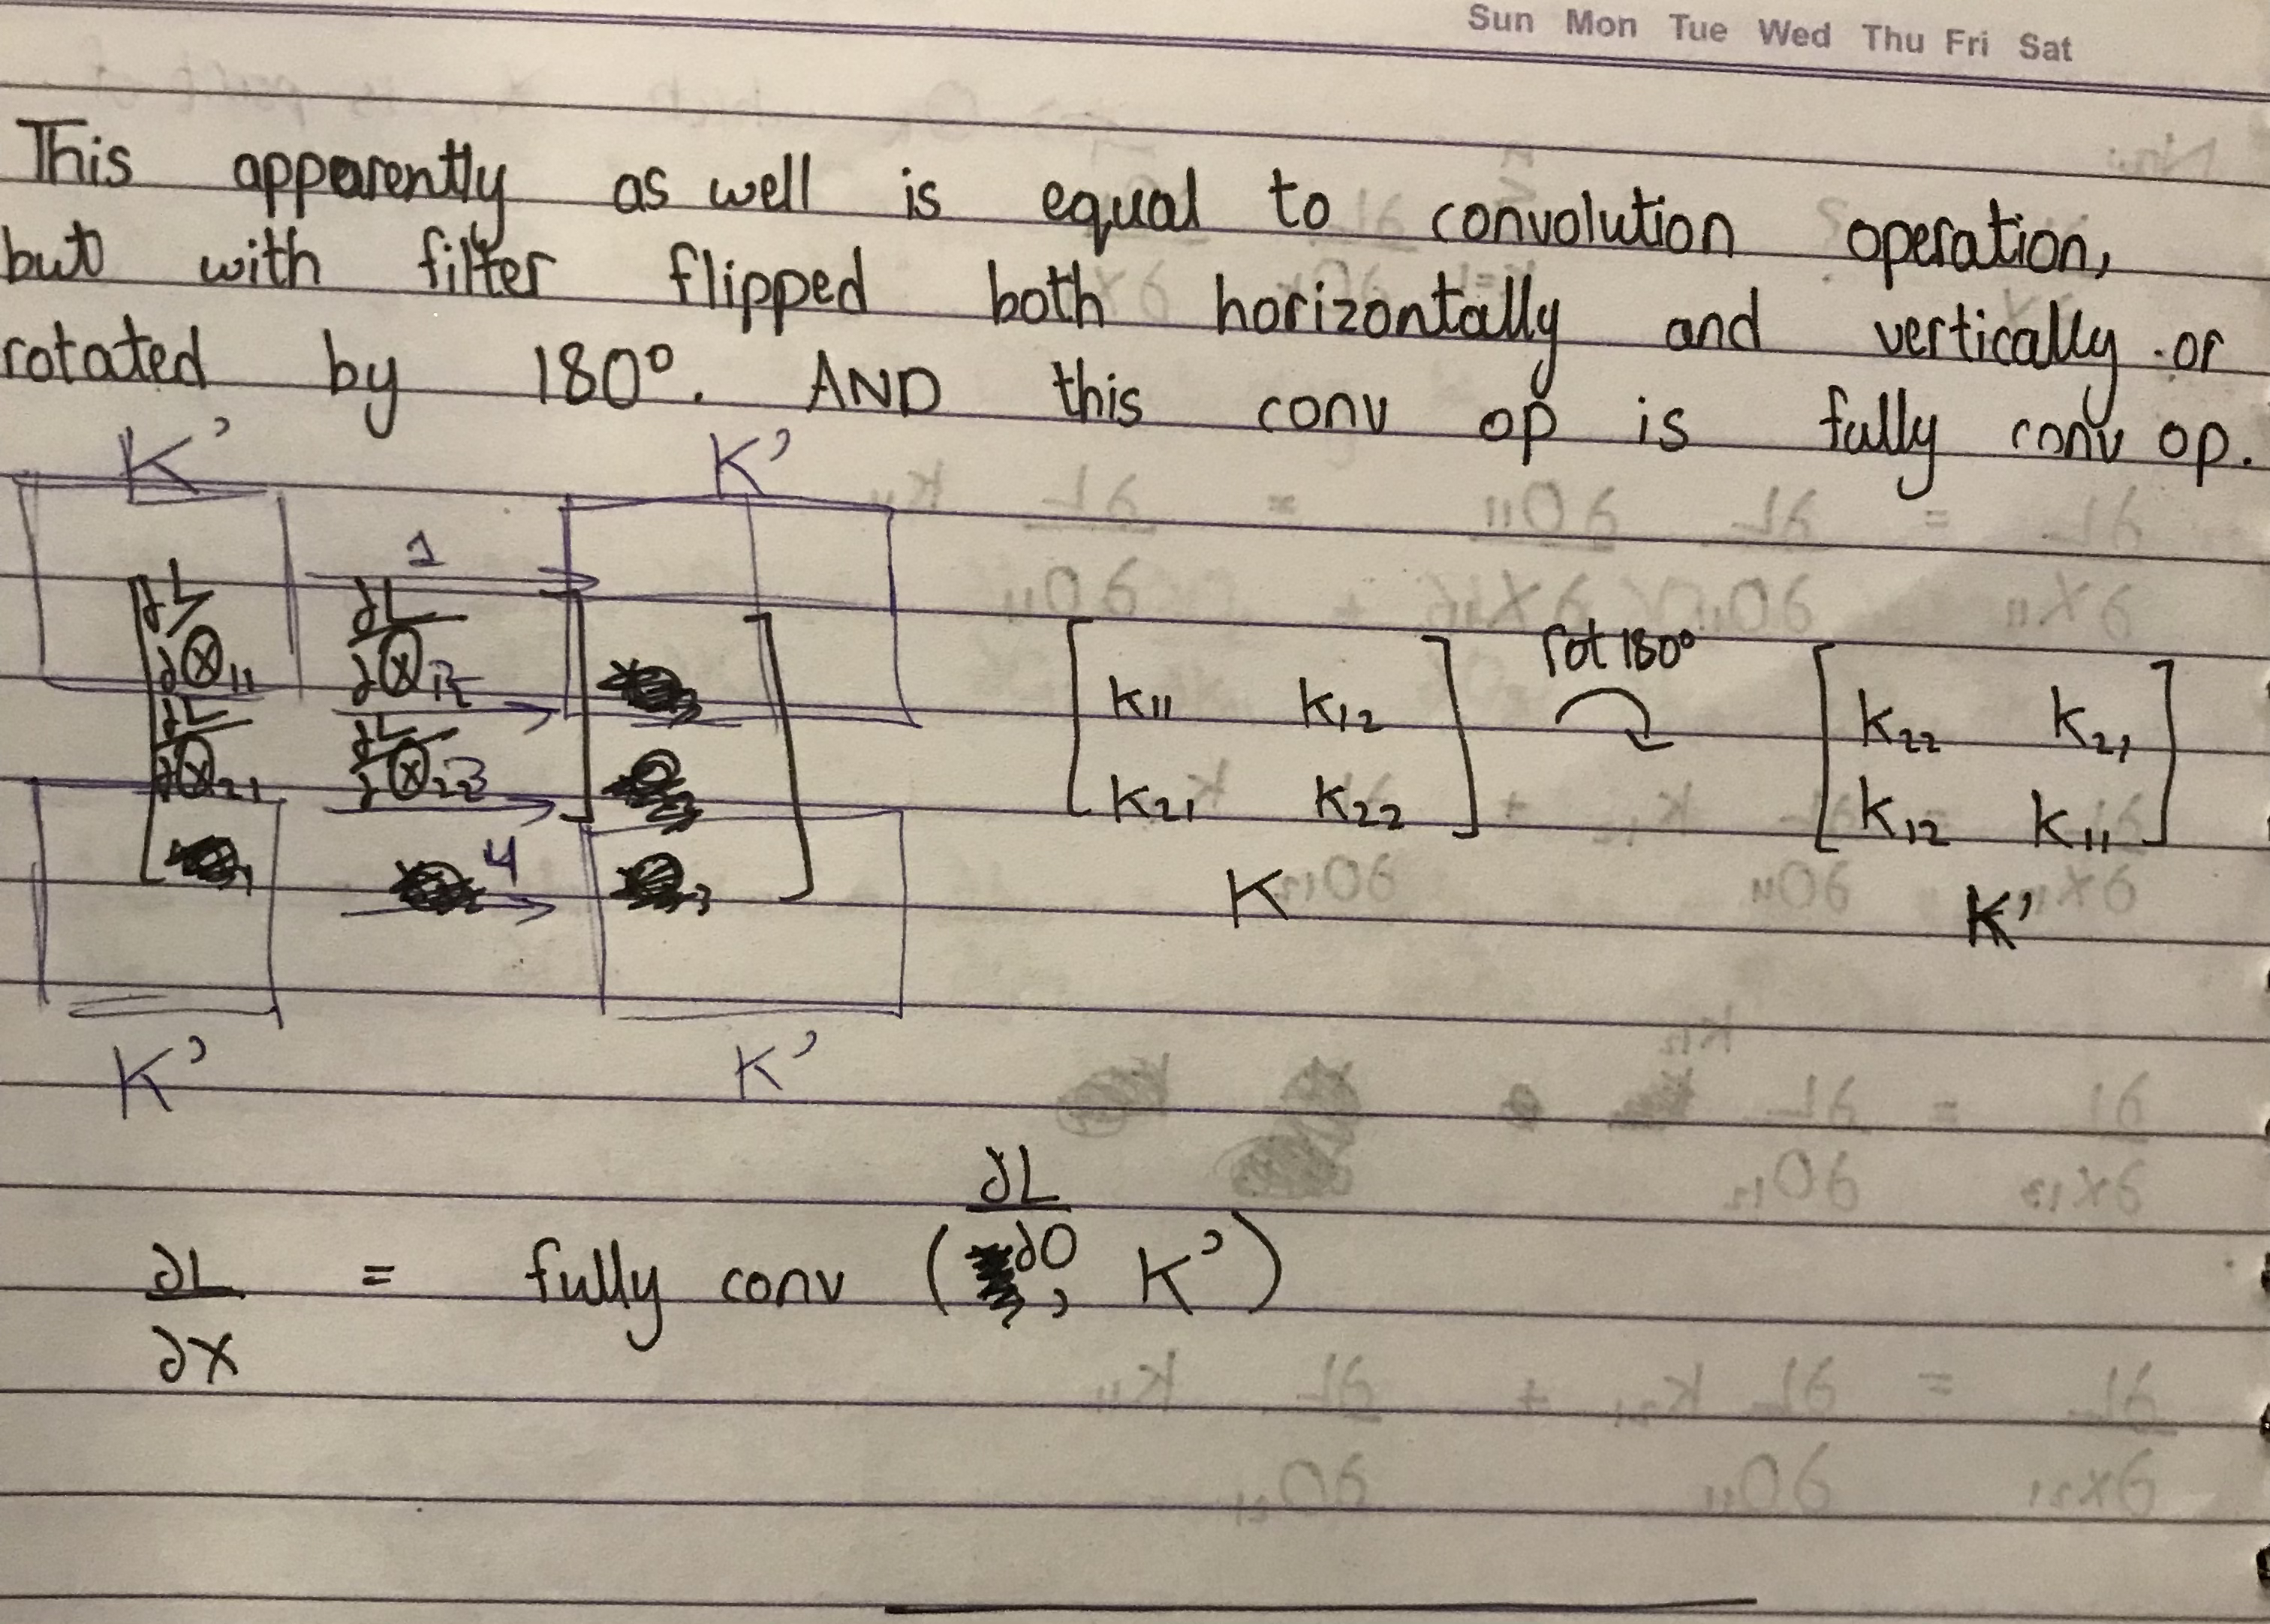 Sun Mon Tue Wed Thu Fri Sat
This apparently as well is equal to convolution operation,
but with filter flipped both horizontally and vertically or
rotated by 180°. AND this conv op is fully conv op.
K' K'
1
∂L ∂L
∂X11
∂L ∂L
∂X21
4
rot 180°
K11 K12 K22 K21
K21 K22 K12 K11
K K'
K' K'
∂L/∂X = fully conv (∂L/∂O, K')